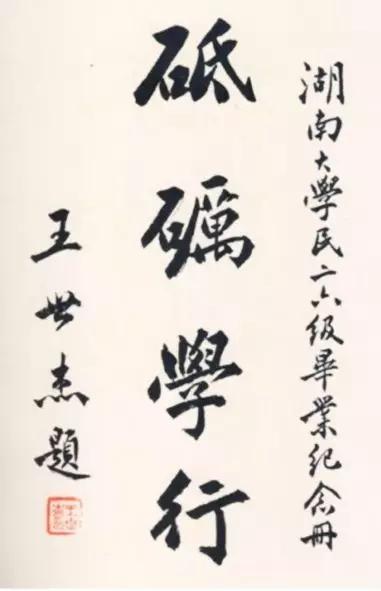 湖南大學民二六級畢業紀念冊
砥礪學行
王世杰題